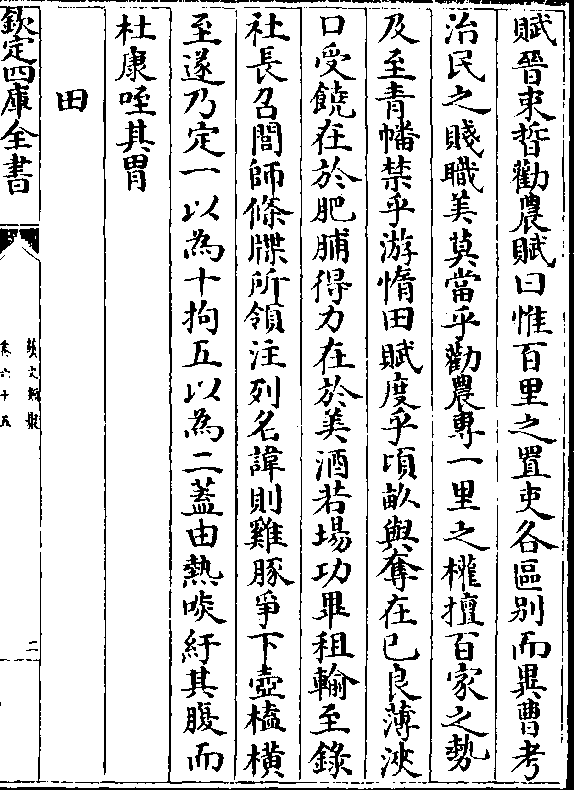 賦晉束晳勸農賦曰惟百里之置吏各區别而異曹考
治民之賤職美莫當乎勸農專一里之權擅百家之勢
及至青幡禁乎游惰田賦度乎頃畝與奪在己良薄浹
口受饒在於肥脯得力在於美酒若場功畢租輸至錄
社長召閭師條牒所領注列名諱則雞豚爭下壺榼橫
至遂乃定一以為十拘五以為二蓋由熱啖紆其腹而
杜康咥其胃
田
欽定四庫全書
藝文類聚
卷六十五
二